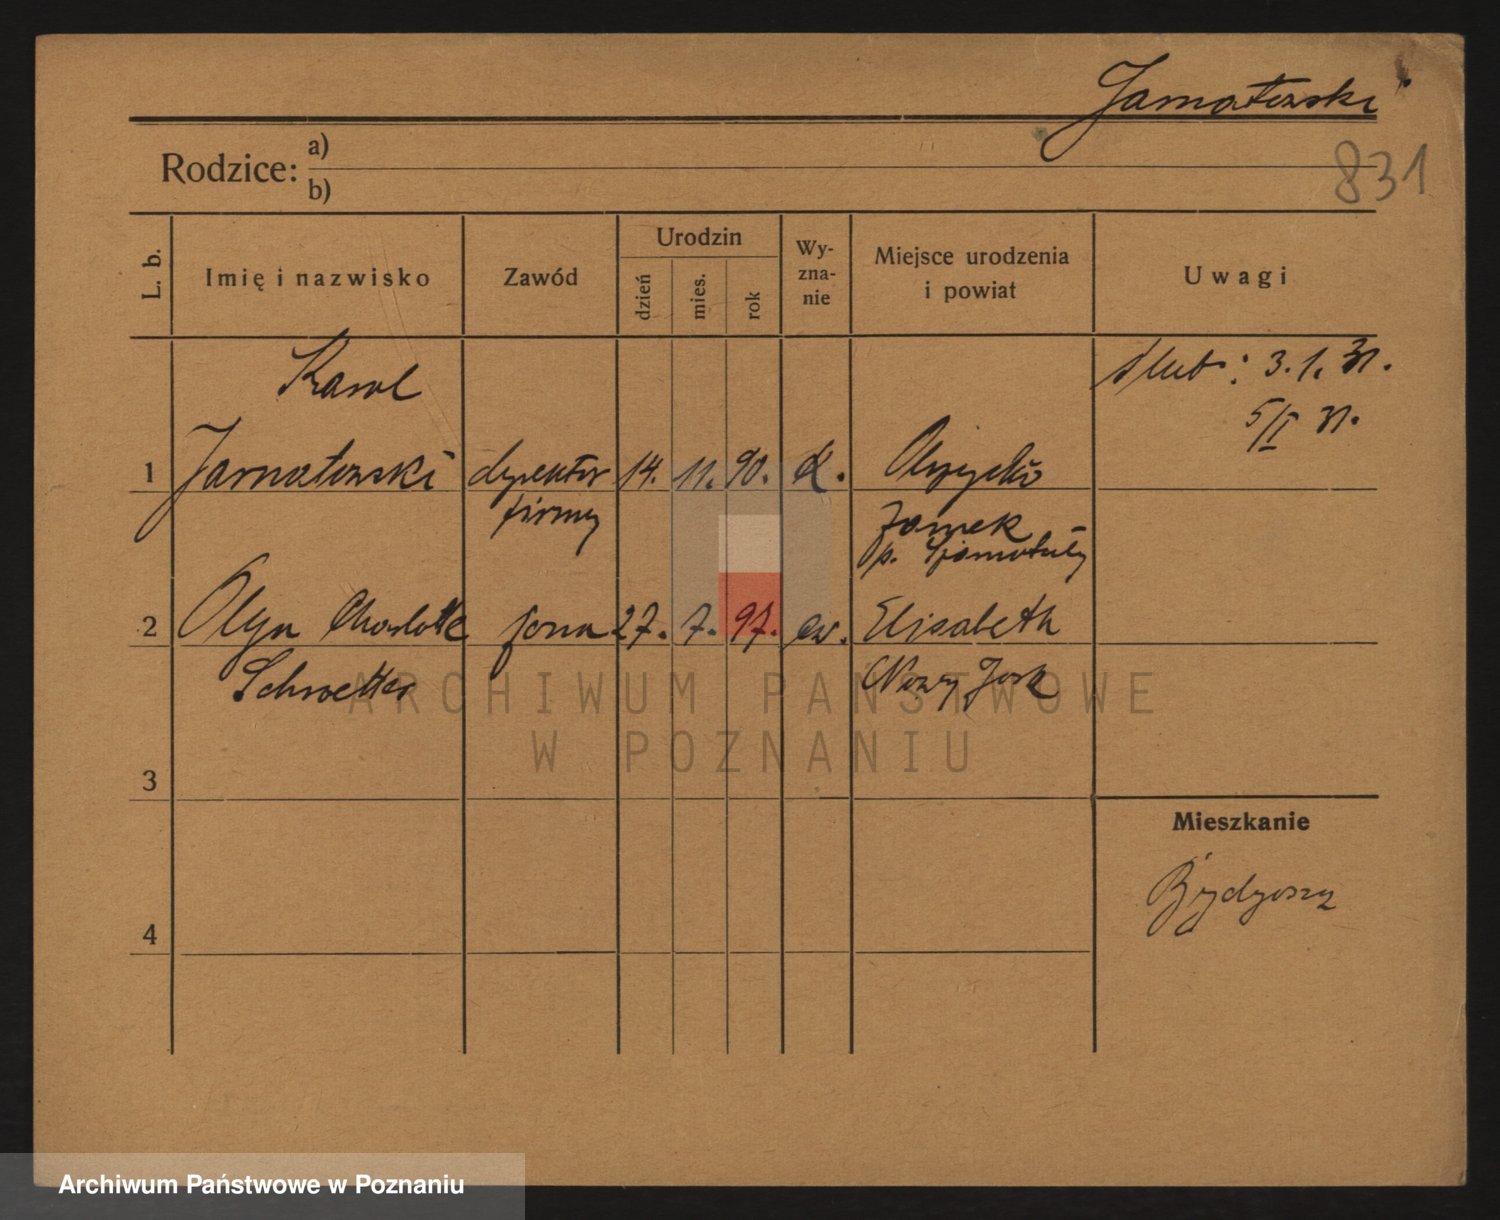 Jarnatowski
831
Rodzice: a)
b)
L. b.
Imię i nazwisko
Zawód
Urodzin
dzień
mies.
rok
Wy-
zna-
nie
Miejsce urodzenia
i powiat
Uwagi
ślub: 3.1.31.
5/I 31.
Karol
1 Jarnatowski dyrektor 14. 11. 90. k. Obrzycko
firmy Zamek
p. Szamotuły
2 Olga Charlotte żona 27. 7. 97. ew. Elisabeth
Schroetter Nowy Jork
3
Mieszkanie
Bydgoszcz
4
ARCHIWUM PAŃSTWOWE
W POZNANIU
Archiwum Państwowe w Poznaniu